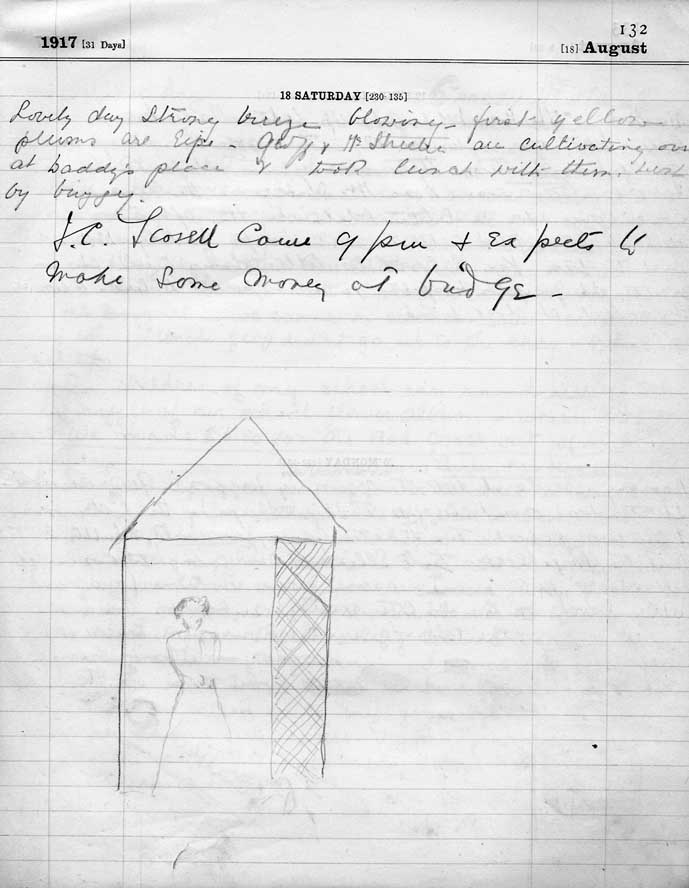 132
1917 [31 Days]
[18] August
18 SATURDAY [230-135]
Lovely day Strong breeze blowing - first yellow
plums are ripe - Geoff & Mr are cultivating over
at Daddy's place & took lunch with them, went
by buggy.
J.C. Scovell Came 9 pm & Expects to
Make Some Money at bridge -